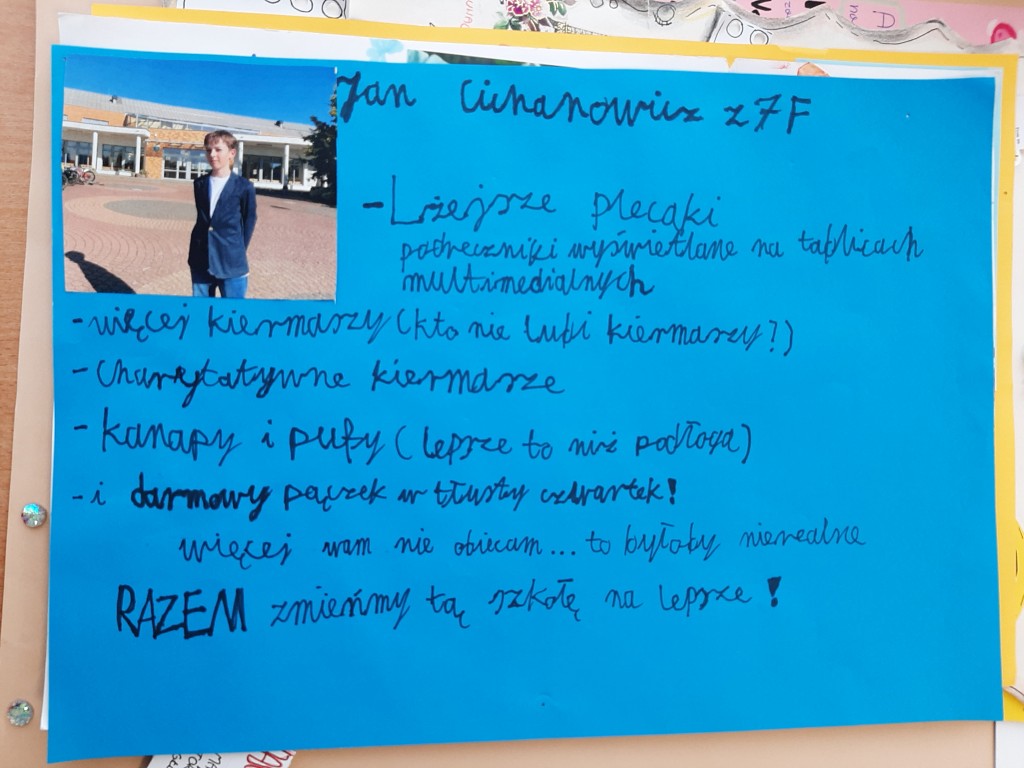 Jan Cichanowicz z 7F
- Lżejsze plecaki
podręczniki wyświetlane na tablicach
multimedialnych
- więcej kiermaszy (kto nie lubi kiermaszy?)
- Charytatywne kiermasze
- kanapy i pufy (leprze to niż podłoga)
- i darmowy pączek w tłusty czwartek!
więcej wam nie obiecam... to byłoby nierealne
RAZEM zmieńmy tą szkołę na leprze!